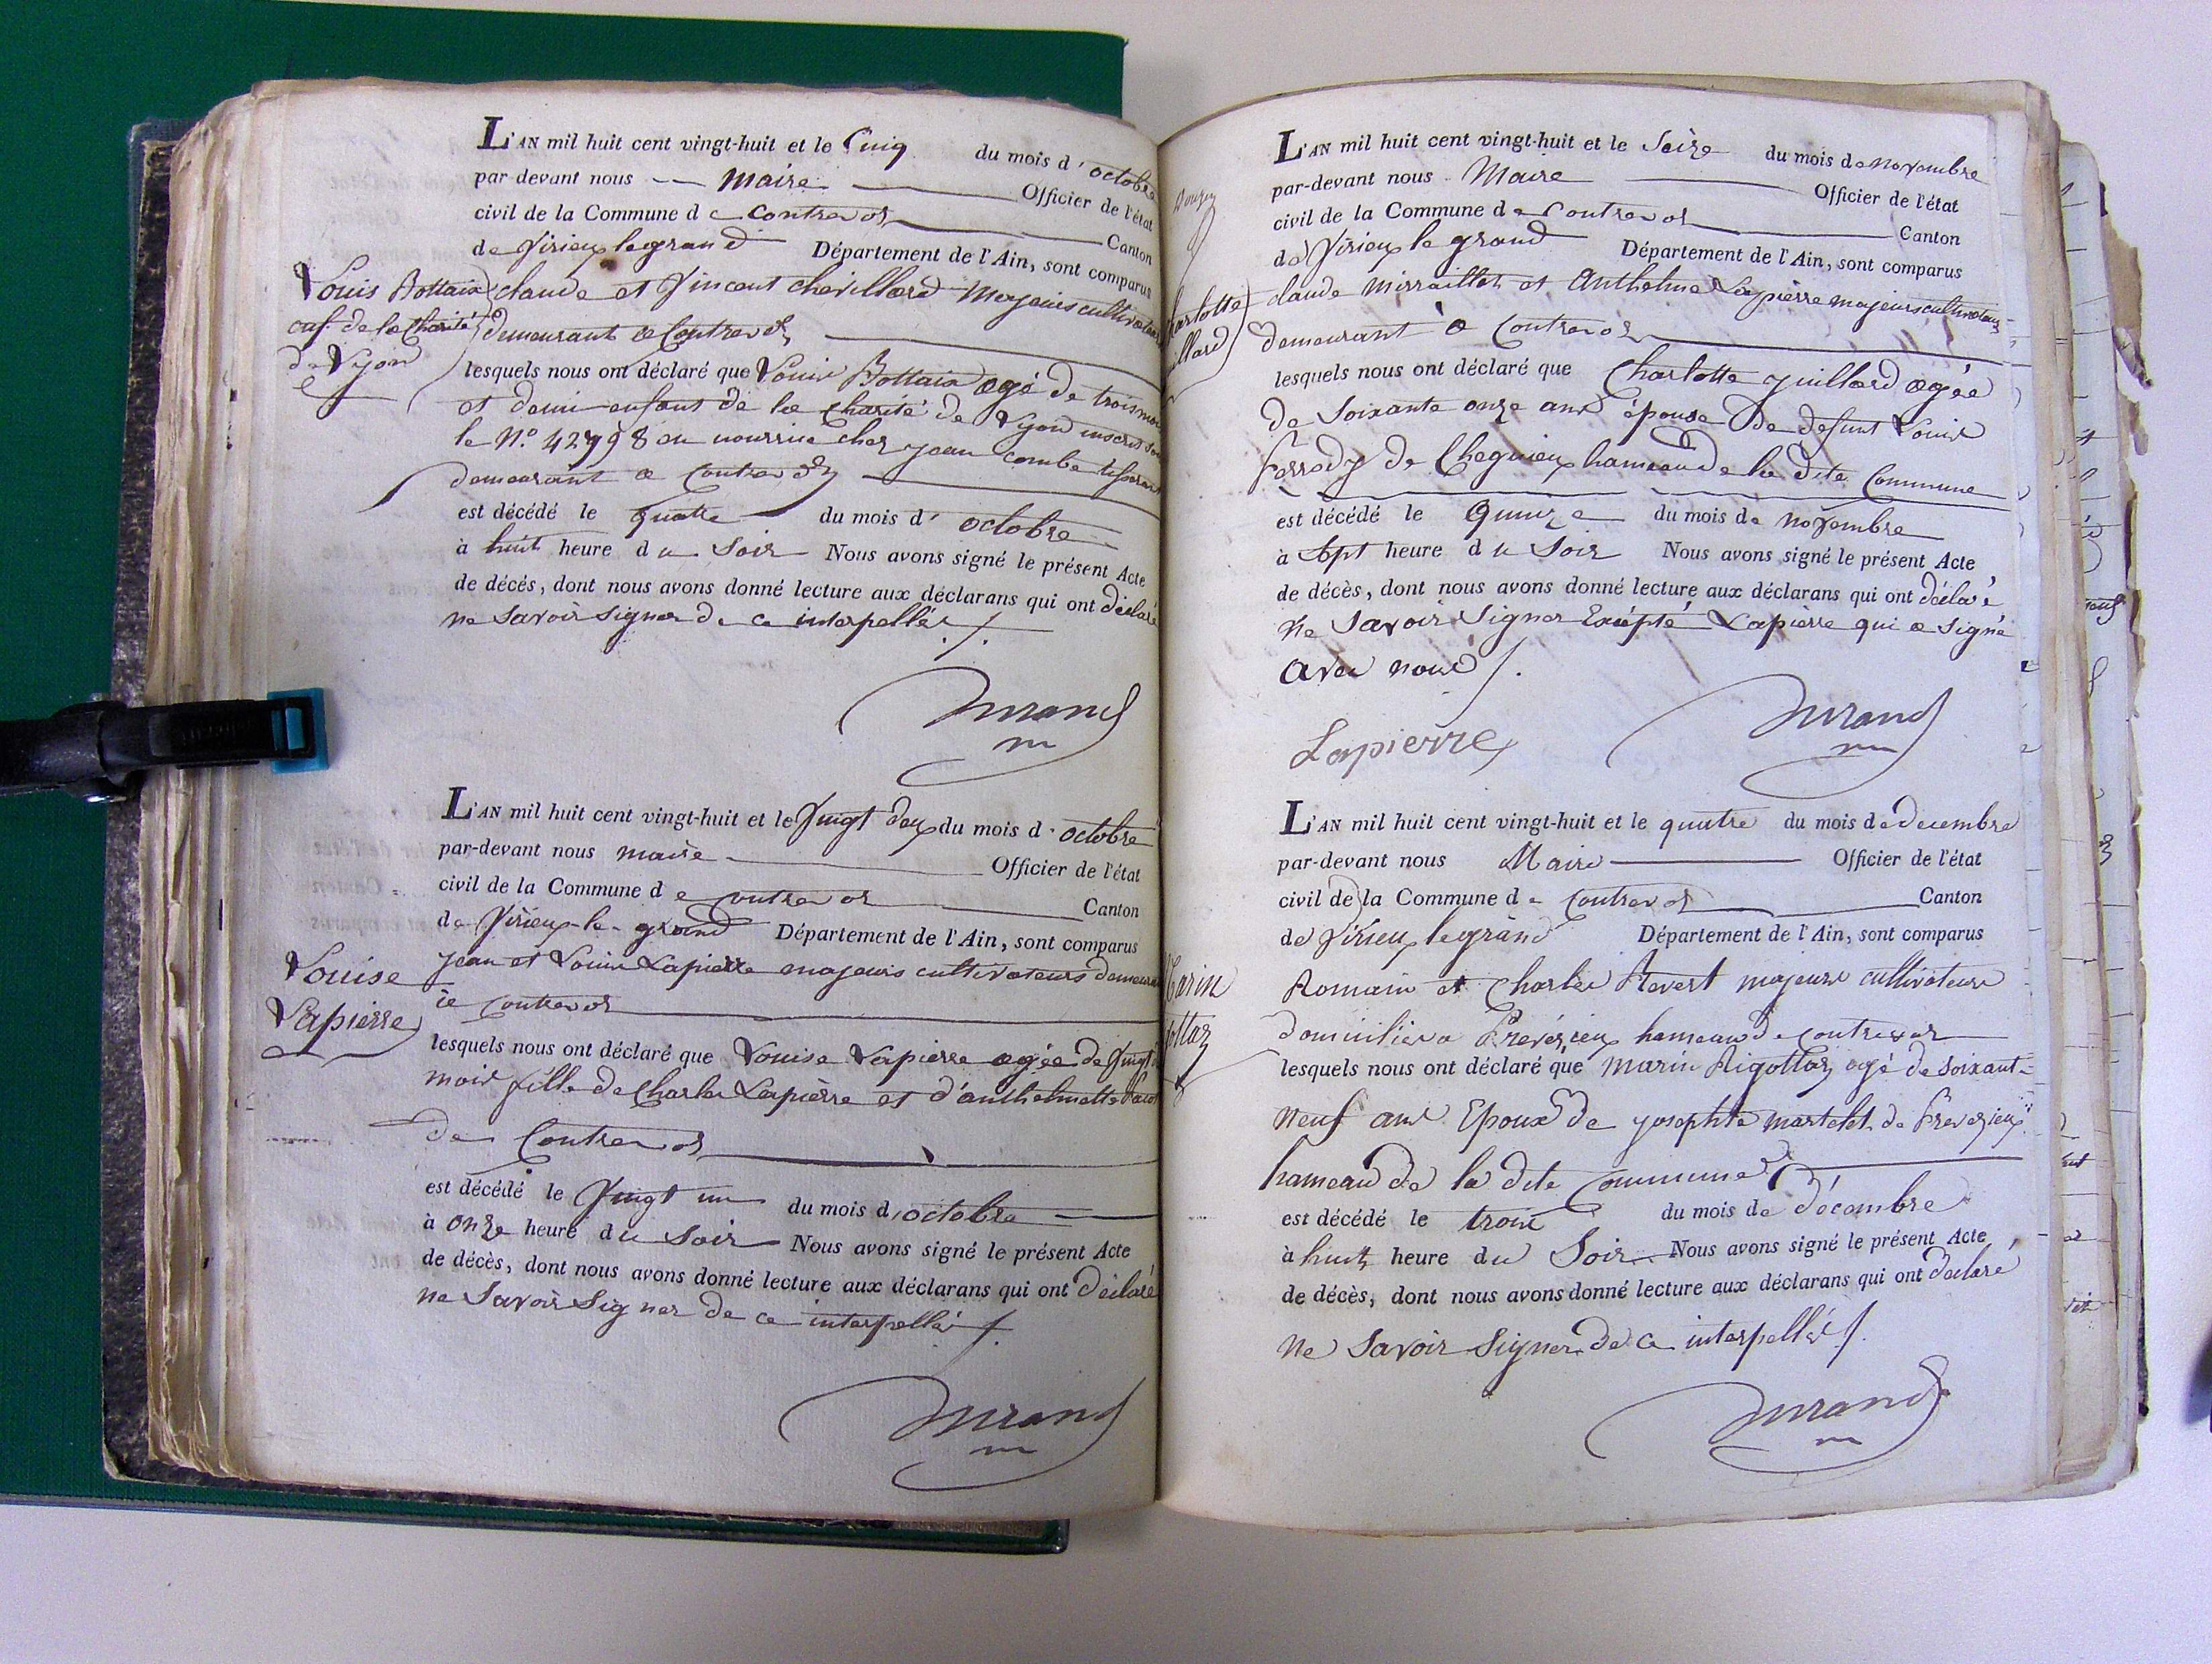 L'AN mil huit cent vingt-huit et le Cinq du mois d'octobre
par-devant nous maire Officier de l'état
civil de la Commune de Contrevoz Canton
de Virieu legrand Département de l'Ain, sont comparus
claude et Vincent chevillard Majeurs cultivateurs
demeurant a Contrevoz
lesquels nous ont déclaré que Louis Bottaix agé de trois mois
et demi enfant de la charité de Lyon inscrit sous
le N.º 42798 en nourrice chez jean combe tisserant
demeurant a Contrevoz
est décédé le quatre du mois d'octobre
à huit heure du Soir Nous avons signé le présent Acte
de décès, dont nous avons donné lecture aux déclarans qui ont déclaré
ne Savoir Signer de ce interpellés
Durand
m
Louis Bottaix
enf. de la Charité
de Lyon
L'AN mil huit cent vingt-huit et le Vingt deux du mois d'octobre
par-devant nous maire Officier de l'état
civil de la Commune de Contrevoz Canton
de Virieu-le-grand Département de l'Ain, sont comparus
jean et Louis Lapierre majeurs cultivateurs demeurant
a contrevoz
lesquels nous ont déclaré que Louise Lapierre agée de Vingt
mois fille de Charles Lapierre et d'anthelmette
de Contrevoz
est décédé le Vingt un du mois d'octobre
à onze heure du Soir Nous avons signé le présent Acte
de décès, dont nous avons donné lecture aux déclarans qui ont déclaré
ne Savoir Signer de ce interpellés
Durand
m
Louise
Lapierre
L'AN mil huit cent vingt-huit et le Seize du mois de novembre
par-devant nous Maire Officier de l'état
civil de la Commune de Contrevoz Canton
de Virieu le grand Département de l'Ain, sont comparus
claude Mirraillet et Anthelme Lapierre majeurs cultivateurs
demeurant à Contrevoz
lesquels nous ont déclaré que Charlotte juillard agée
de Soixante onze ans épouse de defunt Louis
ferrody de Cheguieu hameau de la dite Commune
est décédé le Quinze du mois de novembre
à Sept heure du Soir Nous avons signé le présent Acte
de décès, dont nous avons donné lecture aux déclarans qui ont déclaré
ne Savoir Signer Exépté Lapierre qui a Signé
avec nous
Lapierre
Durand
m
harlotte
illard
L'AN mil huit cent vingt-huit et le quatre du mois de decembre
par-devant nous Maire Officier de l'état
civil de la Commune de Contrevoz Canton
de Virieu legrand Département de l'Ain, sont comparus
Romain et Charles Revert majeurs cultivateurs
domiciliés a Prevézieu hameau de contrevoz
lesquels nous ont déclaré que Marin Rigottaz agé de Soixante
neuf ans Epoux de josephte martelet de Prevezieu
hameau de la dite Commune
est décédé le trois du mois de décembre
à huit heure du Soir Nous avons signé le présent Acte
de décès, dont nous avons donné lecture aux déclarans qui ont déclaré
ne Savoir Signer de ce interpellés
Durand
m
Marin
ottaz